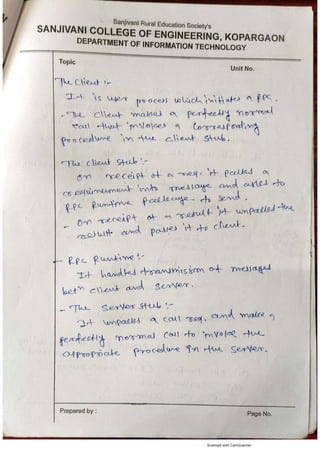 Sanjivani Rural Education Society's
SANJIVANI COLLEGE OF ENGINEERING, KOPARGAON
DEPARTMENT OF INFORMATION TECHNOLOGY
Topic
Unit No.
The Client :-
It is user process which initiates a RPC.
- The client makes a perfectly normal
call that invokes a corresponding
procedure in the client stub.
The Client Stub :-
On receipt of a req. it packs a
into message and asks to
RPC Runtime to send.
- On receipt of a result it unpacks the
result and passes it to client.
- RPC Runtime :-
It handles transmission of messages
betn client and server.
- The Server Stub :-
It unpacks a call req. and make a
perfectly normal call to invoke the
appropriate procedure in the server.
Prepared by :
Page No.
Scanned with CamScanner